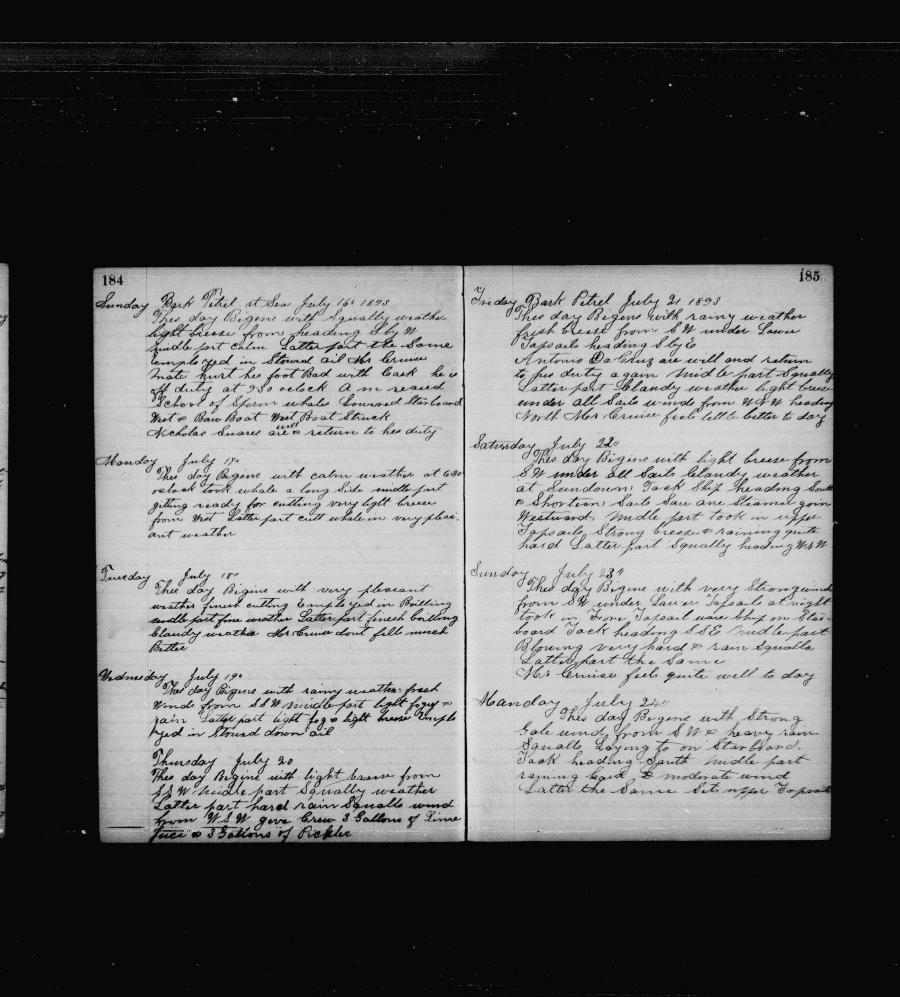 184
Sunday Bark Petrel at Sea July 16" 1893
Thes day Begins with Squally weather
light breese from heading S by W
middle part calm Latter part the Same
Employed in Stowd oil Mr Cruise
Mate hurt his foot Bad with Cask he is
off duty at 930 oclock A m reased
School of Sperm whales Lowered Starboard
West & Bow Boat West Boat Struck
Nicholas Suares are well & return to hes duty
Monday July 17"
Thes day Begins with calm weather at 630
oclock took whale a long Side midle part
gitting ready for cutting very light breese
from West Latter part cutt whale in very pleas-
ant weather
Tuesday July 18"
Thes day Begins with very pleasant
weather finish cutting Employed in Boilling
midle part fine weather Latter part finesh boilling
Claudy weather Mr Cruise dont fill much
Better
Wednesday July 19"
Thes day Bigins with rainy weather fresh
Wind from SSW midle part light fogy &
rain Latter part light fog & light breese Emplo
yed in Stowd down oil
Thursday July 20
Thes day Begins with light breese from
SSW Midle part Squally weather
Latter part hard rain Squalls wind
from WSW give Crew 3 Gallons of Lime
juce & 3 Gallons of Pickles
185
Friday Bark Petrel July 21 1893
Thes day Begins with rainy weather
fresh breese from SW under Lower
Topsails heading S by E
Antonio Da Cruz are will and return
to his duty again Midle part Squally
Latter part Claudy weather light breese
under all Sails wind from WSW heading
North Mr Cruise feel little better to day
Saturday July 22"
Thes day Bigins with light breese from
SW under all Sails Claudy weather
at Sundown Tack Ship heading South
& Shortien Sails Saw are Steamer goin
Westward Midle part took in upper
Topsails Strong breese & raining quite
hard Latter part Squally heading W
Sunday July 23"
Thes day Bigins with very Strong wind
from SW under Lower Topsails at night
took in Fore Topsail ware Ship on Star-
board Tack heading SSE Midle part
Blowing very hard & rain Squalls
Latter part the Same
Mr Cruise feel quite well to day
Monday July 24"
Thes day Begins with Strong
Gale wind from SW & heavy rain
Squalls Laying to on Starboard
Tack heading South Midle part
raining & moderate wind
Latter the Same Sets upper Topsails